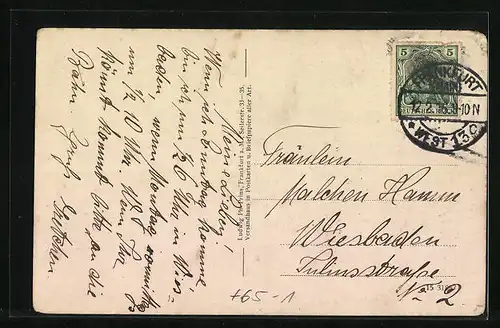 Meine Liebe!
Wenn ich Sonntag komme
bin ich um ½ 6 Uhr in Wies-
baden, wenn Montag vormittg
um ½ 10 Uhr. Wenn Ihr
könnt kommt bitte an die
Bahn
Ludwig Frankfurt a. M., Seilerstr. 31–35.
Versandhaus in Postkarten u. Briefpapiere aller Art.
5 5
FRANKFURT
(MAIN)
10 N
* WEST 13 C
Fräulein
Malchen Hamm
Wiesbaden
Juliusstraße
No 2
+65-1